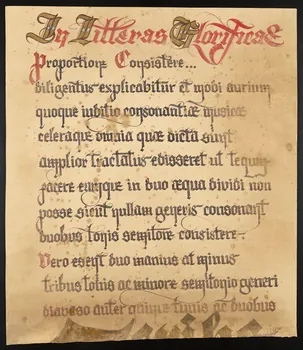 In Litteras Glorificae
Proportione Consistere...
diligentius explicabitur et modi aurium
quoque iubilio consonantiae musicae
celeraque omnia quae dicta sunt
amplior tractatus edisseret ut tequm
facere eumque in duo aequa dividi non
posse sicut nullam generis consonant
duobus tonis semitone consistere.
Vero esent duo manius at minus
tribus tonis ac minore semitonio generi
duobus